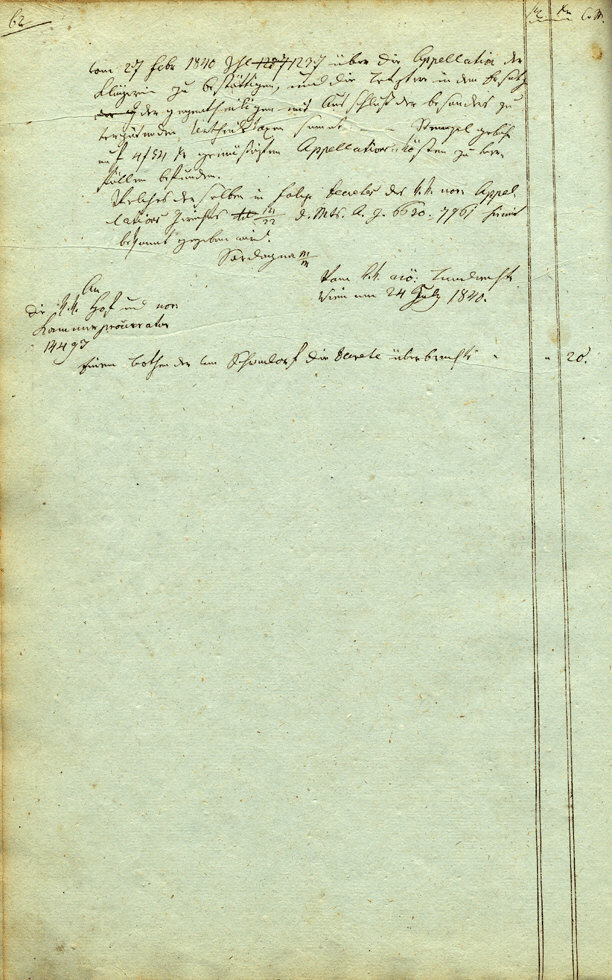 62
fl kr C. M.
vom 27 Febr 1840 Zhl 1237 1237 über die Appellation der
Klägerin zu bestättigen, und die letztere in den Ersatz
der gegentheiligen mit Ausschluß der besonders zu
vergütenden Urtheilstaxen sammt Stempel gebühr
auf 4/54 kr gemäßigten Appellations kösten zu ver¬
fällen befunden.
Welches derselben in Folge Decrets des k. k. nör Appel¬
lations Gerichts d. Mts. 7961 hiemit
bekannt gegeben wird.
Sardagna
Vom k. k. nrö: Landrechte
Wien am 24 July 1840.
An
die k. k. Hof und nör
Kammerprocurator
14493
Einem bothen der von Schondorf die Decrete überbrachte " " 20.